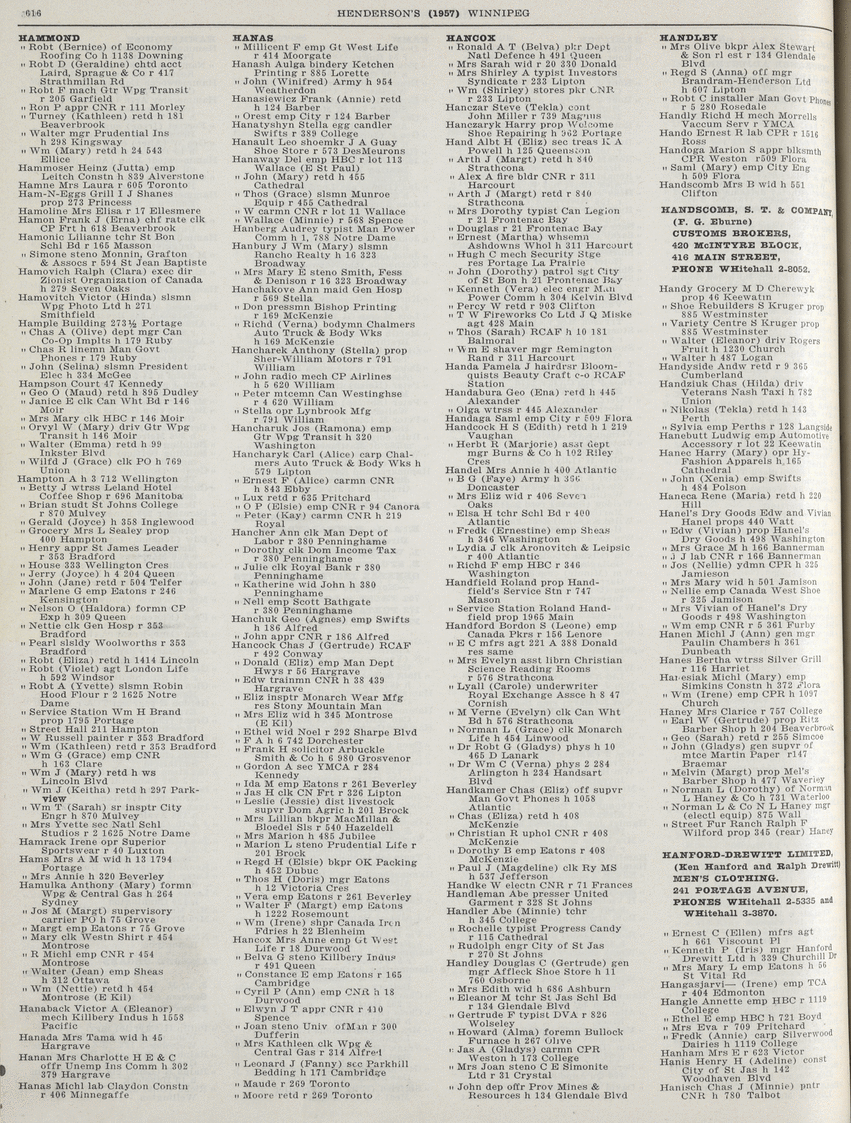 616
HENDERSON'S (1957) WINNIPEG
HAMMOND
" Robt (Bernice) of Economy
Roofing Co h 1138 Downing
" Robt D (Geraldine) chtd acct
Laird, Sprague & Co r 417
Strathmillan Rd
" Robt F mach Gtr Wpg Transit
r 205 Garfield
" Ron P appr CNR r 111 Morley
" Turney (Kathleen) retd h 181
Beaverbrook
" Walter mgr Prudential Ins
h 298 Kingsway
" Wm (Mary) retd h 24 543
Ellice
Hammoser Heinz (Jutta) emp
Leitch Constn h 839 Alverstone
Hamne Mrs Laura r 605 Toronto
Ham-N-Eggs Grill I J Shanes
prop 273 Princess
Hamoline Mrs Elissa r 17 Ellesmere
Hamon Frank J (Erna) chf rate clk
CP Frt h 618 Beaverbrook
Hamonic Lilianne tchr St Bon
Schl Bd r 165 Masson
" Simone steno Monnin, Grafton
& Assocs r 594 St Jean Baptiste
Hamovich Ralph (Clara) exec dir
Zionist Organization of Canada
h 279 Seven Oaks
Hamovitch Victor (Hinda) slsmn
Wpg Photo Ltd h 271
Smithfield
Hample Building 273½ Portage
" Chas A (Olive) dept mgr Can
Co-Op Implts h 179 Ruby
" Chas R linemn Man Govt
Phones r 179 Ruby
" John (Selina) slsmn President
Elec h 334 McGee
Hampson Court 47 Kennedy
" Geo O (Maud) retd h 895 Dudley
" Janice E clk Can Wht Bd r 146
Moir
" Mrs Mary clk HBC r 146 Moir
" Orvyl W (Mary) driv Gtr Wpg
Transit h 146 Moir
" Walter (Emma) retd h 99
Inkster Blvd
" Wilfd J (Grace) clk PO h 769
Union
Hampton A h 3 712 Wellington
" Betty J wtrss Leland Hotel
Coffee Shop r 696 Manitoba
" Brian studt St Johns College
r 870 Mulvey
" Gerald (Joyce) h 358 Inglewood
" Grocery Mrs L Sealey prop
400 Hampton
" Henry appr St James Leader
r 353 Bradford
" House 333 Wellington Cres
" Jerry (Joyce) h 4 204 Queen
" John (Jane) retd r 504 Telfer
" Marlene G emp Eatons r 246
Kensington
" Nelson O (Haldora) formn CP
Exp h 309 Queen
" Nettie clk Gen Hosp r 353
Bradford
" Pearl slsldy Woolworths r 353
Bradford
" Robt (Eliza) retd h 1414 Lincoln
" Robt (Violet) agt London Life
h 592 Windsor
" Robt A (Yvette) slsmn Robin
Hood Flour r 2 1625 Notre
Dame
" Service Station Wm H Brand
prop 1795 Portage
" Street Hall 211 Hampton
" W Russell painter r 353 Bradford
" Wm (Kathleen) retd r 353 Bradford
" Wm G (Grace) emp CNR
h 163 Clare
" Wm J (Mary) retd h ws
Lincoln Blvd
" Wm J (Keitha) retd h 297 Park-
view
" Wm T (Sarah) sr insptr City
Engr h 870 Mulvey
" Mrs Yvette sec Natl Schl
Studios r 2 1625 Notre Dame
Hamrack Irene opr Superior
Sportswear r 40 Luxton
Hams Mrs A M wid h 13 1794
Portage
" Mrs Annie h 320 Beverley
Hamulka Anthony (Mary) formn
Wpg & Central Gas h 264
Sydney
" Jos M (Margt) supervisory
carrier PO h 75 Grove
" Margt emp Eatons r 75 Grove
" Mary clk Westn Shirt r 454
Montrose
" R Michl emp CNR r 454
Montrose
" Walter (Jean) emp Sheas
h 312 Ottawa
" Wm (Nettie) retd h 454
Montrose (E Kil)
Hanaback Victor A (Eleanor)
mech Killbery Indus h 1558
Pacific
Hanada Mrs Tama wid h 45
Hargrave
Hanan Mrs Charlotte H E & C
offr Unemp Ins Comm h 302
379 Hargrave
Hanas Michl lab Claydon Constn
r 406 Minnegaffe
HANAS
" Millicent F emp Gt West Life
r 414 Moorgate
Hanash Aulga bindery Ketchen
Printing r 885 Lorette
" John (Winifred) Army h 954
Weatherdon
Hanasiewicz Frank (Annie) retd
h 124 Barber
" Orest emp City r 124 Barber
Hanatyshyn Stella egg candler
Swifts r 389 College
Hanault Leo shoemkr J A Guay
Shoe Store r 573 DesMeurons
Hanaway Del emp HBC r lot 113
Wallace (E St Paul)
" John (Mary) retd h 455
Cathedral
" Thos (Grace) slsmn Munroe
Equip r 455 Cathedral
" W carmn CNR r lot 11 Wallace
" Wallace (Minnie) r 568 Spence
Hanberg Audrey typist Man Power
Comm h 1, 788 Notre Dame
Hanbury J Wm (Mary) slsmn
Rancho Realty h 16 323
Broadway
" Mrs Mary E steno Smith, Fess
& Denison r 16 323 Broadway
Hanchakove Ann maid Gen Hosp
r 569 Stella
" Don pressmn Bishop Printing
r 169 McKenzie
" Richd (Verna) bodymn Chalmers
Auto Truck & Body Wks
h 169 McKenzie
Hancharek Anthony (Stella) prop
Sher-William Motors r 791
William
" John radio mech CP Airlines
h 5 620 William
" Peter mtcemn Can Westinghse
r 4 620 William
" Stella opr Lynbrook Mfg
r 791 William
Hancharuk Jos (Ramona) emp
Gtr Wpg Transit h 320
Washington
Hancharyk Carl (Alice) carp Chal-
mers Auto Truck & Body Wks h
579 Lipton
" Ernest F (Alice) carmn CNR
h 843 Ebby
" Lux retd r 635 Pritchard
" O P (Elsie) emp CNR r 94 Canora
" Peter (Kay) carmn CNR h 219
Royal
Hancher Ann clk Man Dept of
Labor r 380 Penninghame
" Dorothy clk Dom Income Tax
r 380 Penninghame
" Julie clk Royal Bank r 380
Penninghame
" Katherine wid John h 380
Penninghame
" Nell emp Scott Bathgate
r 380 Penninghame
Hanchuk Geo (Agnes) emp Swifts
h 186 Alfred
" John appr CNR r 186 Alfred
Hancock Chas J (Gertrude) RCAF
r 492 Conway
" Donald (Eliz) emp Man Dept
Hwys r 56 Hargrave
" Edw trainmn CNR h 38 439
Hargrave
" Eliz insptr Monarch Wear Mfg
res Stony Mountain Man
" Mrs Eliz wid h 345 Montrose
(E Kil)
" Ethel wid Noel r 292 Sharpe Blvd
" F A h 6 742 Dorchester
" Frank H solicitor Arbuckle
Smith & Co h 6 980 Grosvenor
" Gordon A sec YMCA r 284
Kennedy
" Ida M emp Eatons r 261 Beverley
" Jas H clk CN Frt r 326 Lipton
" Leslie (Jessie) dist livestock
supvr Dom Agric h 201 Brock
" Mrs Lillian bkpr MacMillan &
Bloedel Sls r 540 Hazeldell
" Mrs Marion h 485 Jubilee
" Marion L steno Prudential Life r
201 Brock
" Regd H (Elsie) bkpr OK Packing
h 452 Dubuc
" Thos H (Doris) mgr Eatons
h 12 Victoria Cres
" Vera emp Eatons r 261 Beverley
" Walter F (Margt) emp Eatons
h 1222 Rosemount
" Wm (Irene) shpr Canada Iron
Fdries h 22 Blenheim
Hancox Mrs Anne emp Gt West
Life r 18 Durwood
" Belva G steno Killbery Indus
r 491 Queen
" Constance E emp Eatons r 165
Cambridge
" Cyril P (Ann) emp CNR h 18
Durwood
" Elwyn J T appr CNR r 410
Spence
" Joan steno Univ of Man r 300
Dufferin
" Mrs Kathleen clk Wpg &
Central Gas r 314 Alfred
" Leonard J (Fanny) sec Parkhill
Bedding h 171 Cambridge
" Maude r 269 Toronto
" Moore retd r 269 Toronto
HANCOX
" Ronald A T (Belva) pkr Dept
Natl Defence h 491 Queen
" Mrs Sarah wid r 20 330 Donald
" Mrs Shirley A typist Investors
Syndicate r 233 Lipton
" Wm (Shirley) stores pkr CNR
r 233 Lipton
Hanczar Steve (Tekla) cont
John Miller r 739 Magnus
Hanczaryk Harry prop Welcome
Shoe Repairing h 962 Portage
Hand Albt H (Eliz) sec treas K A
Powell h 125 Queenston
" Arth J (Margt) retd h 840
Strathcona
" Alex A fire bldr CNR r 311
Harcourt
" Arth J (Margt) retd r 840
Strathcona
" Mrs Dorothy typist Can Legion
r 21 Frontenac Bay
" Douglas r 21 Frontenac Bay
" Ernest (Martha) whsemn
Ashdowns Whol h 311 Harcourt
" Hugh C mech Security Stge
res Portage La Prairie
" John (Dorothy) patrol sgt City
of St Bon h 21 Frontenac Bay
" Kenneth (Vera) elec engr Man
Power Comm h 304 Kelvin Blvd
" Percy W retd r 903 Clifton
" T W Fireworks Co Ltd J Q Miske
agt 428 Main
" Thos (Sarah) RCAF h 10 181
Balmoral
" Wm E shaver mgr Remington
Rand r 311 Harcourt
Handa Pamela J hairdrsr Bloom-
quists Beauty Craft c-o RCAF
Station
Handabura Geo (Ena) retd h 445
Alexander
" Olga wtrss r 445 Alexander
Handaga Saml emp City r 509 Flora
Handcock H S (Edith) retd h 1 219
Vaughan
" Herbt R (Marjorie) asst dept
mgr Burns & Co h 102 Riley
Cres
Handel Mrs Annie h 400 Atlantic
" B G (Faye) Army h 366
Doncaster
" Mrs Eliz wid r 406 Seven
Oaks
" Elsa H tchr Schl Bd r 400
Atlantic
" Fredk (Ernestine) emp Sheas
h 346 Washington
" Lydia J clk Aronovitch & Leipsic
r 400 Atlantic
" Richd F emp HBC r 346
Washington
Handfield Roland prop Hand-
field's Service Stn r 747
Mason
" Service Station Roland Hand-
field prop 1965 Main
Handford Bordon S (Leone) emp
Canada Pkrs r 156 Lenore
" E C mfrs agt 221 A 388 Donald
res same
" Mrs Evelyn asst librn Christian
Science Reading Rooms
r 576 Strathcona
" Lyall (Carole) underwriter
Royal Exchange Assce h 8 47
Cornish
" M Verne (Evelyn) clk Can Wht
Bd h 576 Strathcona
" Norman L (Grace) clk Monarch
Life h 454 Linwood
" Dr Robt G (Gladys) phys h 10
465 D Lanark
" Dr Wm C (Verna) phys 2 284
Arlington h 234 Handsart
Blvd
Handkamer Chas (Eliz) off supvr
Man Govt Phones h 1058
Atlantic
" Chas (Eliza) retd h 408
McKenzie
" Christian R uphol CNR r 408
McKenzie
" Dorothy B emp Eatons r 408
McKenzie
" Paul J (Magdeline) clk Ry MS
h 537 Jefferson
Handke W electn CNR r 71 Frances
Handleman Abe presser United
Garment r 328 St Johns
Handler Abe (Minnie) tchr
h 345 College
" Rochelle typist Progress Candy
r 115 Cathedral
" Rudolph engr City of St Jas
r 270 St Johns
Handley Douglas C (Gertrude) gen
mgr Affleck Shoe Store h 11
760 Osborne
" Mrs Edith wid h 686 Ashburn
" Eleanor M tchr St Jas Schl Bd
r 134 Glendale Blvd
" Gertrude F typist DVA r 826
Wolseley
" Howard (Alma) foremn Bullock
Furnace h 267 Olive
" Jas A (Gladys) carmn CPR
Weston h 173 College
" Mrs Joan steno C E Simonite
Ltd r 31 Crystal
" John dep offr Prov Mines &
Resources h 134 Glendale Blvd
HANDLEY
" Mrs Olive bkpr Alex Stewart
& Son rl est r 134 Glendale
Blvd
" Regd S (Anna) off mgr
Brandram-Henderson Ltd
h 607 Lipton
" Robt C installer Man Govt Phones
r 5 280 Rosedale
Handly Richd H mech Morrells
Vaccum Serv r YMCA
Hando Ernest R lab CPR r 1516
Ross
Handoga Marion S appr blksmth
CPR Weston r509 Flora
" Saml (Mary) emp City Eng
h 509 Flora
Handscomb Mrs B wid h 551
Clifton
HANDSCOMB, S. T. & COMPANY,
(F. G. Eburne)
CUSTOMS BROKERS,
420 McINTYRE BLOCK,
416 MAIN STREET,
PHONE WHitehall 2-8052.
Handy Grocery M D Cherewyk
prop 46 Keewatin
" Shoe Rebuilders S Kruger prop
885 Westminster
" Variety Centre S Kruger prop
885 Westminster
" Walter (Eleanor) driv Rogers
Fruit h 1230 Church
" Walter h 487 Logan
Handyside Andw retd r 9 365
Cumberland
Handziuk Chas (Hilda) driv
Veterans Nash Taxi h 782
Union
" Nikolas (Tekla) retd h 143
Perth
" Sylvia emp Perths r 128 Langside
Hanebutt Ludwig emp Automotive
Accessory r lot 22 Keewatin
Hanec Harry (Mary) opr Hy-
Fashion Apparels h 165
Cathedral
" John (Xenia) emp Swifts
h 484 Polson
Haneca Rene (Maria) retd h 220
Hill
Hanel's Dry Goods Edw and Vivian
Hanel props 440 Watt
" Edw (Vivian) prop Hanel's
Dry Goods h 498 Washington
" Mrs Grace M h 166 Bannerman
" J J lab CNR r 166 Bannerman
" Jos (Nellie) ydmn CPR h 325
Jamieson
" Mrs Mary wid h 501 Jamison
" Nellie emp Canada West Shoe
r 325 Jamison
" Mrs Vivian of Hanel's Dry
Goods r 498 Washington
" Wm emp CNR r 5 361 Furby
Hanen Michl J (Ann) gen mgr
Paulin Chambers h 361
Dunbeath
Hanes Bertha wtrss Silver Grill
r 116 Harriet
Hanesiak Michl (Mary) emp
Simkins Constn h 372 Flora
" Wm (Irene) emp CPR h 1097
Church
Haney Mrs Clarice r 757 College
" Earl W (Gertrude) prop Ritz
Barber Shop h 204 Beaverbrook
" Geo (Sarah) retd r 255 Simcoe
" John (Gladys) gen supvr of
mtce Martin Paper r147
Braemar
" Melvin (Margt) prop Mel's
Barber Shop h 477 Waverley
" Norman L (Dorothy) of Norman
L Haney & Co h 731 Waterloo
" Norman L & Co N L Haney mgr
(electl equip) 875 Wall
" Street Fur Ranch Ralph F
Wilford prop 345 (rear) Haney
HANFORD-DREWITT LIMITED,
(Ken Hanford and Ralph Drewitt)
MEN'S CLOTHING.
241 PORTAGE AVENUE,
PHONES WHitehall 2-5335 and
WHitehall 3-3870.
" Ernest C (Ellen) mfrs agt
h 661 Viscount Pl
" Kenneth P (Iris) mgr Hanford
Drewitt Ltd h 339 Churchill Dr
" Mrs Mary L emp Eatons h 56
St Vital Rd
Hangasjarvi— (Irene) emp TCA
r 404 Edmonton
Hangle Annette emp HBC r 1119
College
" Ethel E emp HBC h 721 Boyd
" Mrs Eva r 709 Pritchard
" Fredk (Annie) carp Silverwood
Dairies h 1119 College
Hanham Mrs E r 623 Victor
Hanis Henry H (Adeline) const
City of St Jas h 142
Woodhaven Blvd
Hanisch Chas J (Minnie) pntr
CNR h 780 Talbot